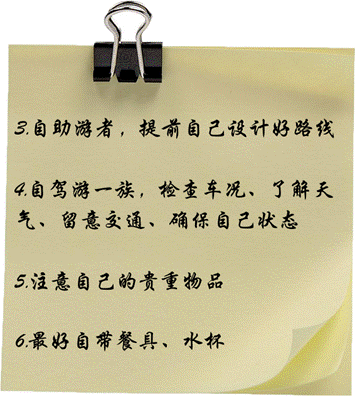 3.自助游者，提前自己设计好路线
4.自驾游一族，检查车况、了解天
气、留意交通、确保自己状态
5.注意自己的贵重物品
6.最好自带餐具、水杯